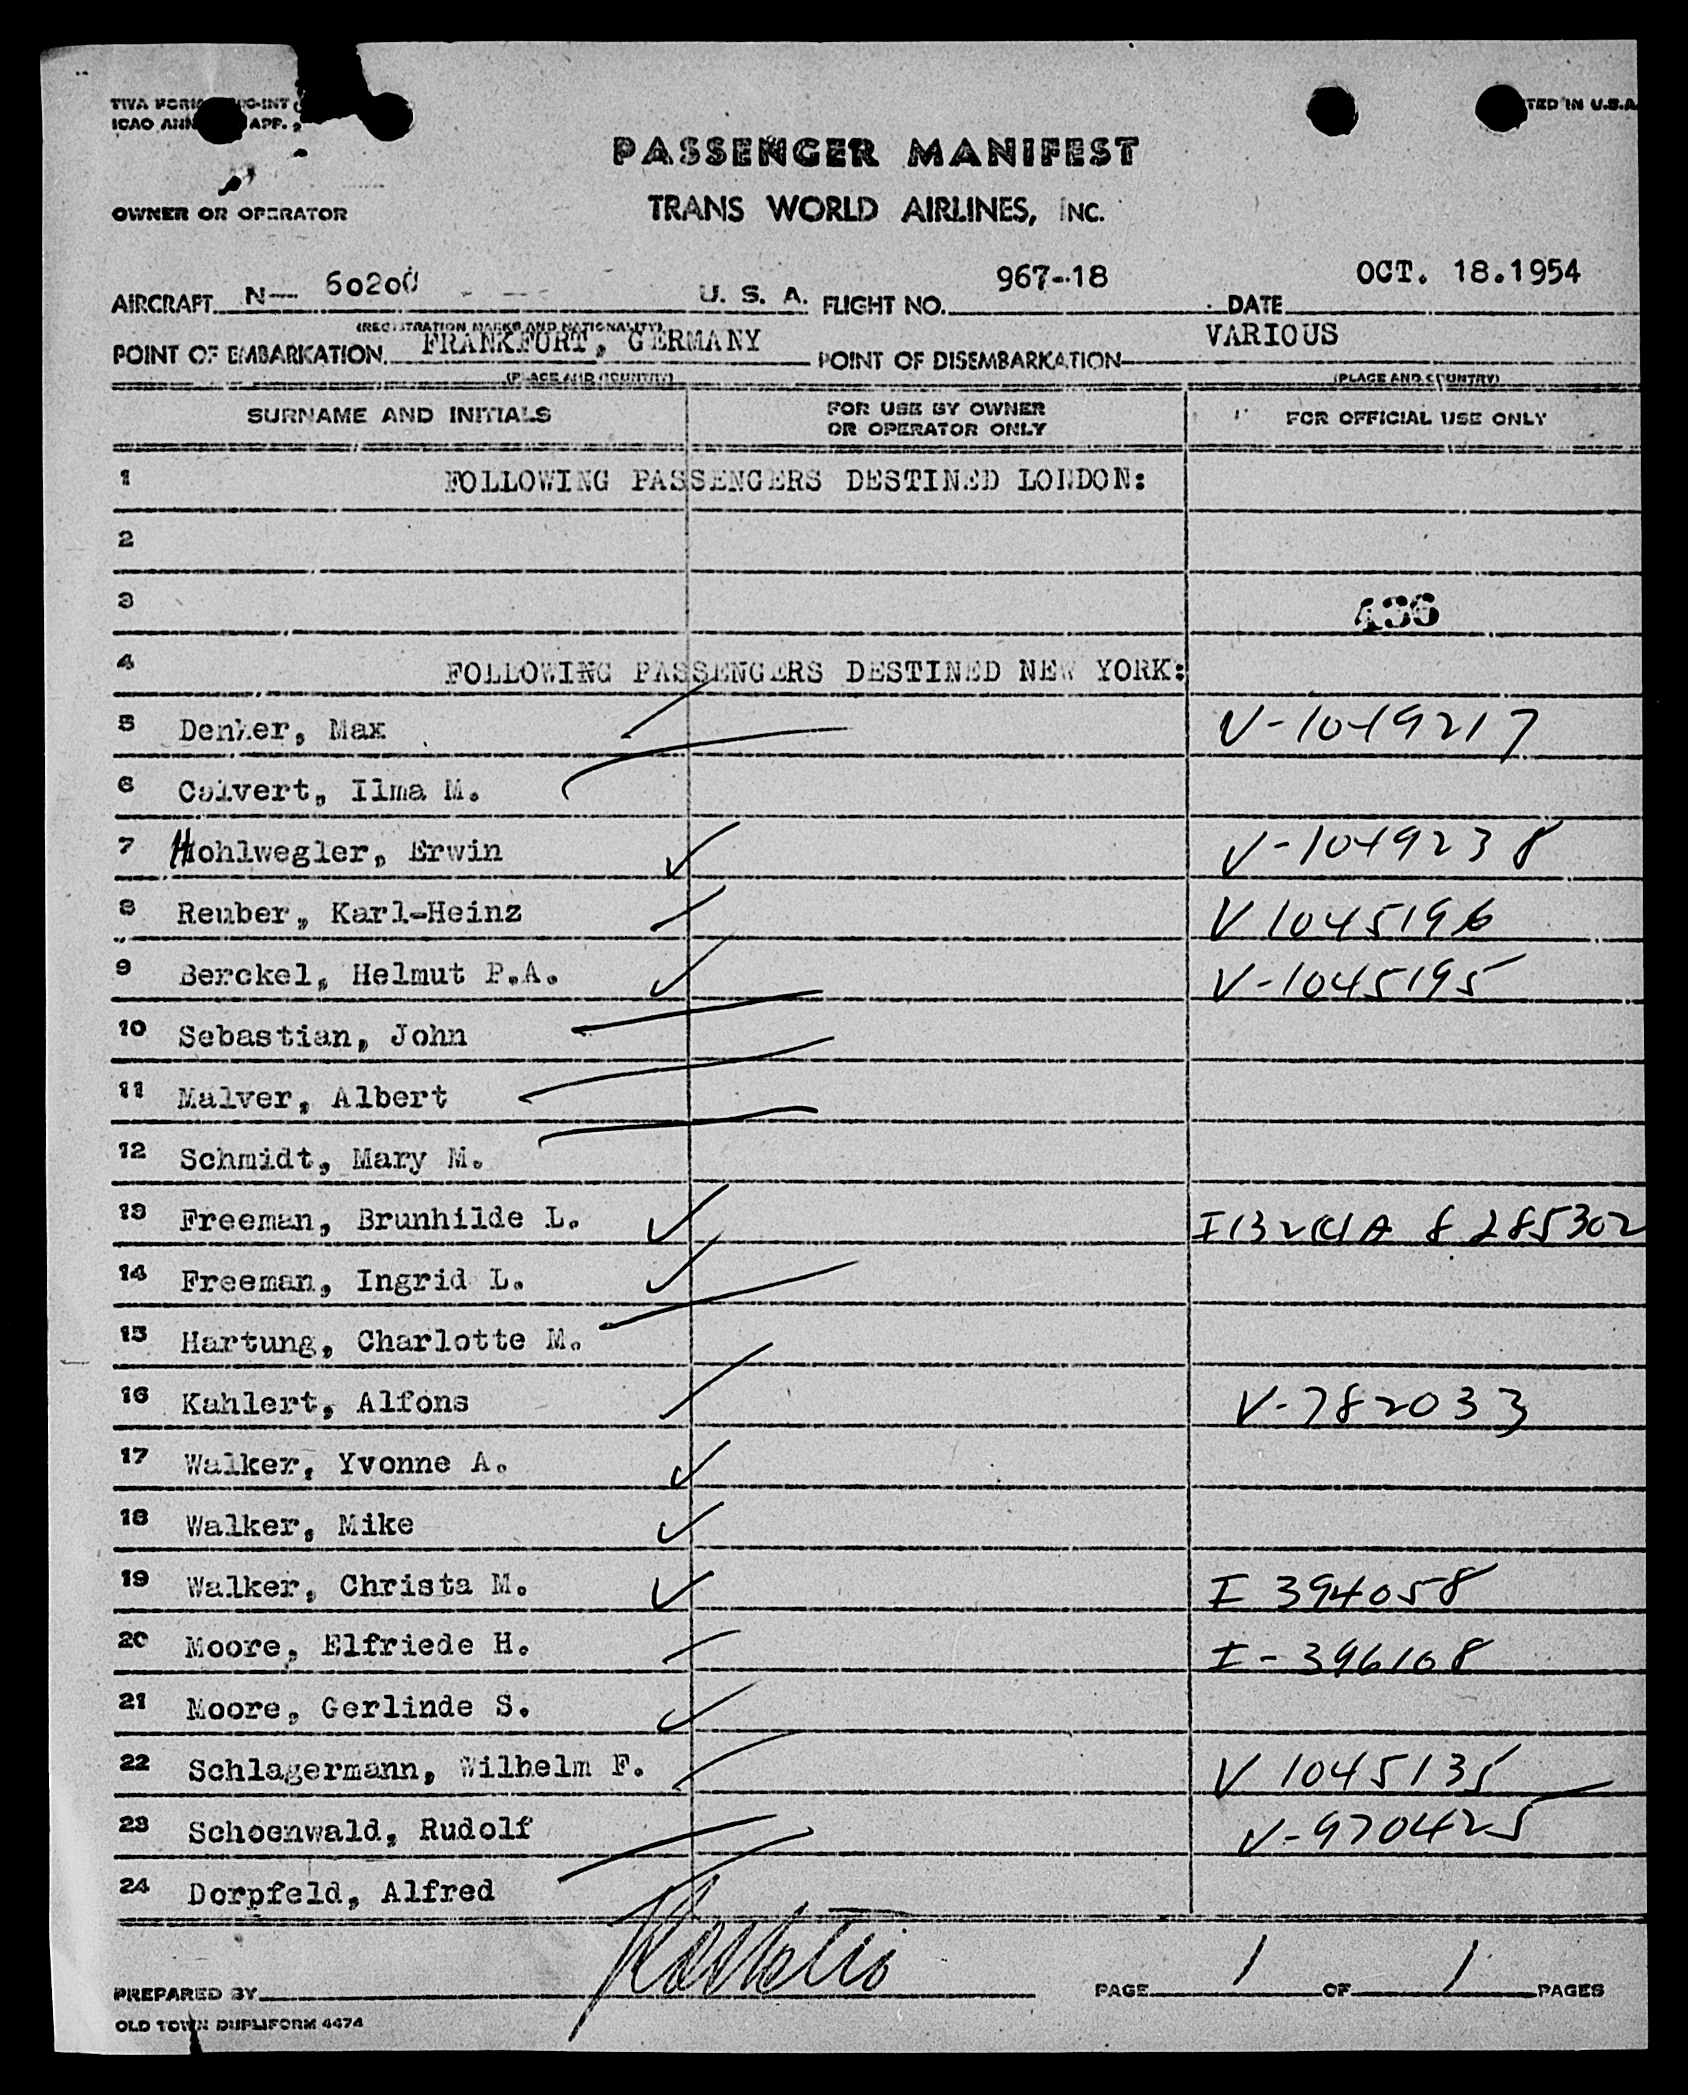 TWA FORM
ICAO ANN APP.
TED IN U.S.A
PASSENGER MANIFEST
OWNER OR OPERATOR
TRANS WORLD AIRLINES, INC.
AIRCRAFT N— 60200 U. S. A. FLIGHT NO. 967-18 DATE OCT. 18.1954
(REGISTRATION MARKS AND NATIONALITY)
POINT OF EMBARKATION FRANKFURT, GERMANY POINT OF DISEMBARKATION VARIOUS
(PLACE AND COUNTRY) (PLACE AND COUNTRY)
SURNAME AND INITIALS FOR USE BY OWNER OR OPERATOR ONLY FOR OFFICIAL USE ONLY
1 FOLLOWING PASSENGERS DESTINED LONDON:
2
3 436
4 FOLLOWING PASSENGERS DESTINED NEW YORK:
5 Denker, Max V-1049217
6 Calvert, Ilma M.
7 Hohlwegler, Erwin V-1049238
8 Reuber, Karl-Heinz V 1045196
9 Berckel, Helmut P.A. V-1045195
10 Sebastian, John
11 Malver, Albert
12 Schmidt, Mary M.
13 Freeman, Brunhilde L. 8 285302
14 Freeman, Ingrid L.
15 Hartung, Charlotte M.
16 Kahlert, Alfons V-782033
17 Walker, Yvonne A.
18 Walker, Mike
19 Walker, Christa M. I 394058
20 Moore, Elfriede H. I-396108
21 Moore, Gerlinde S.
22 Schlagermann, Wilhelm F. V 1045135
23 Schoenwald, Rudolf V-970425
24 Dorpfeld, Alfred
PREPARED BY PAGE 1 OF 1 PAGES
OLD TOWN DUPLIFORM 4474